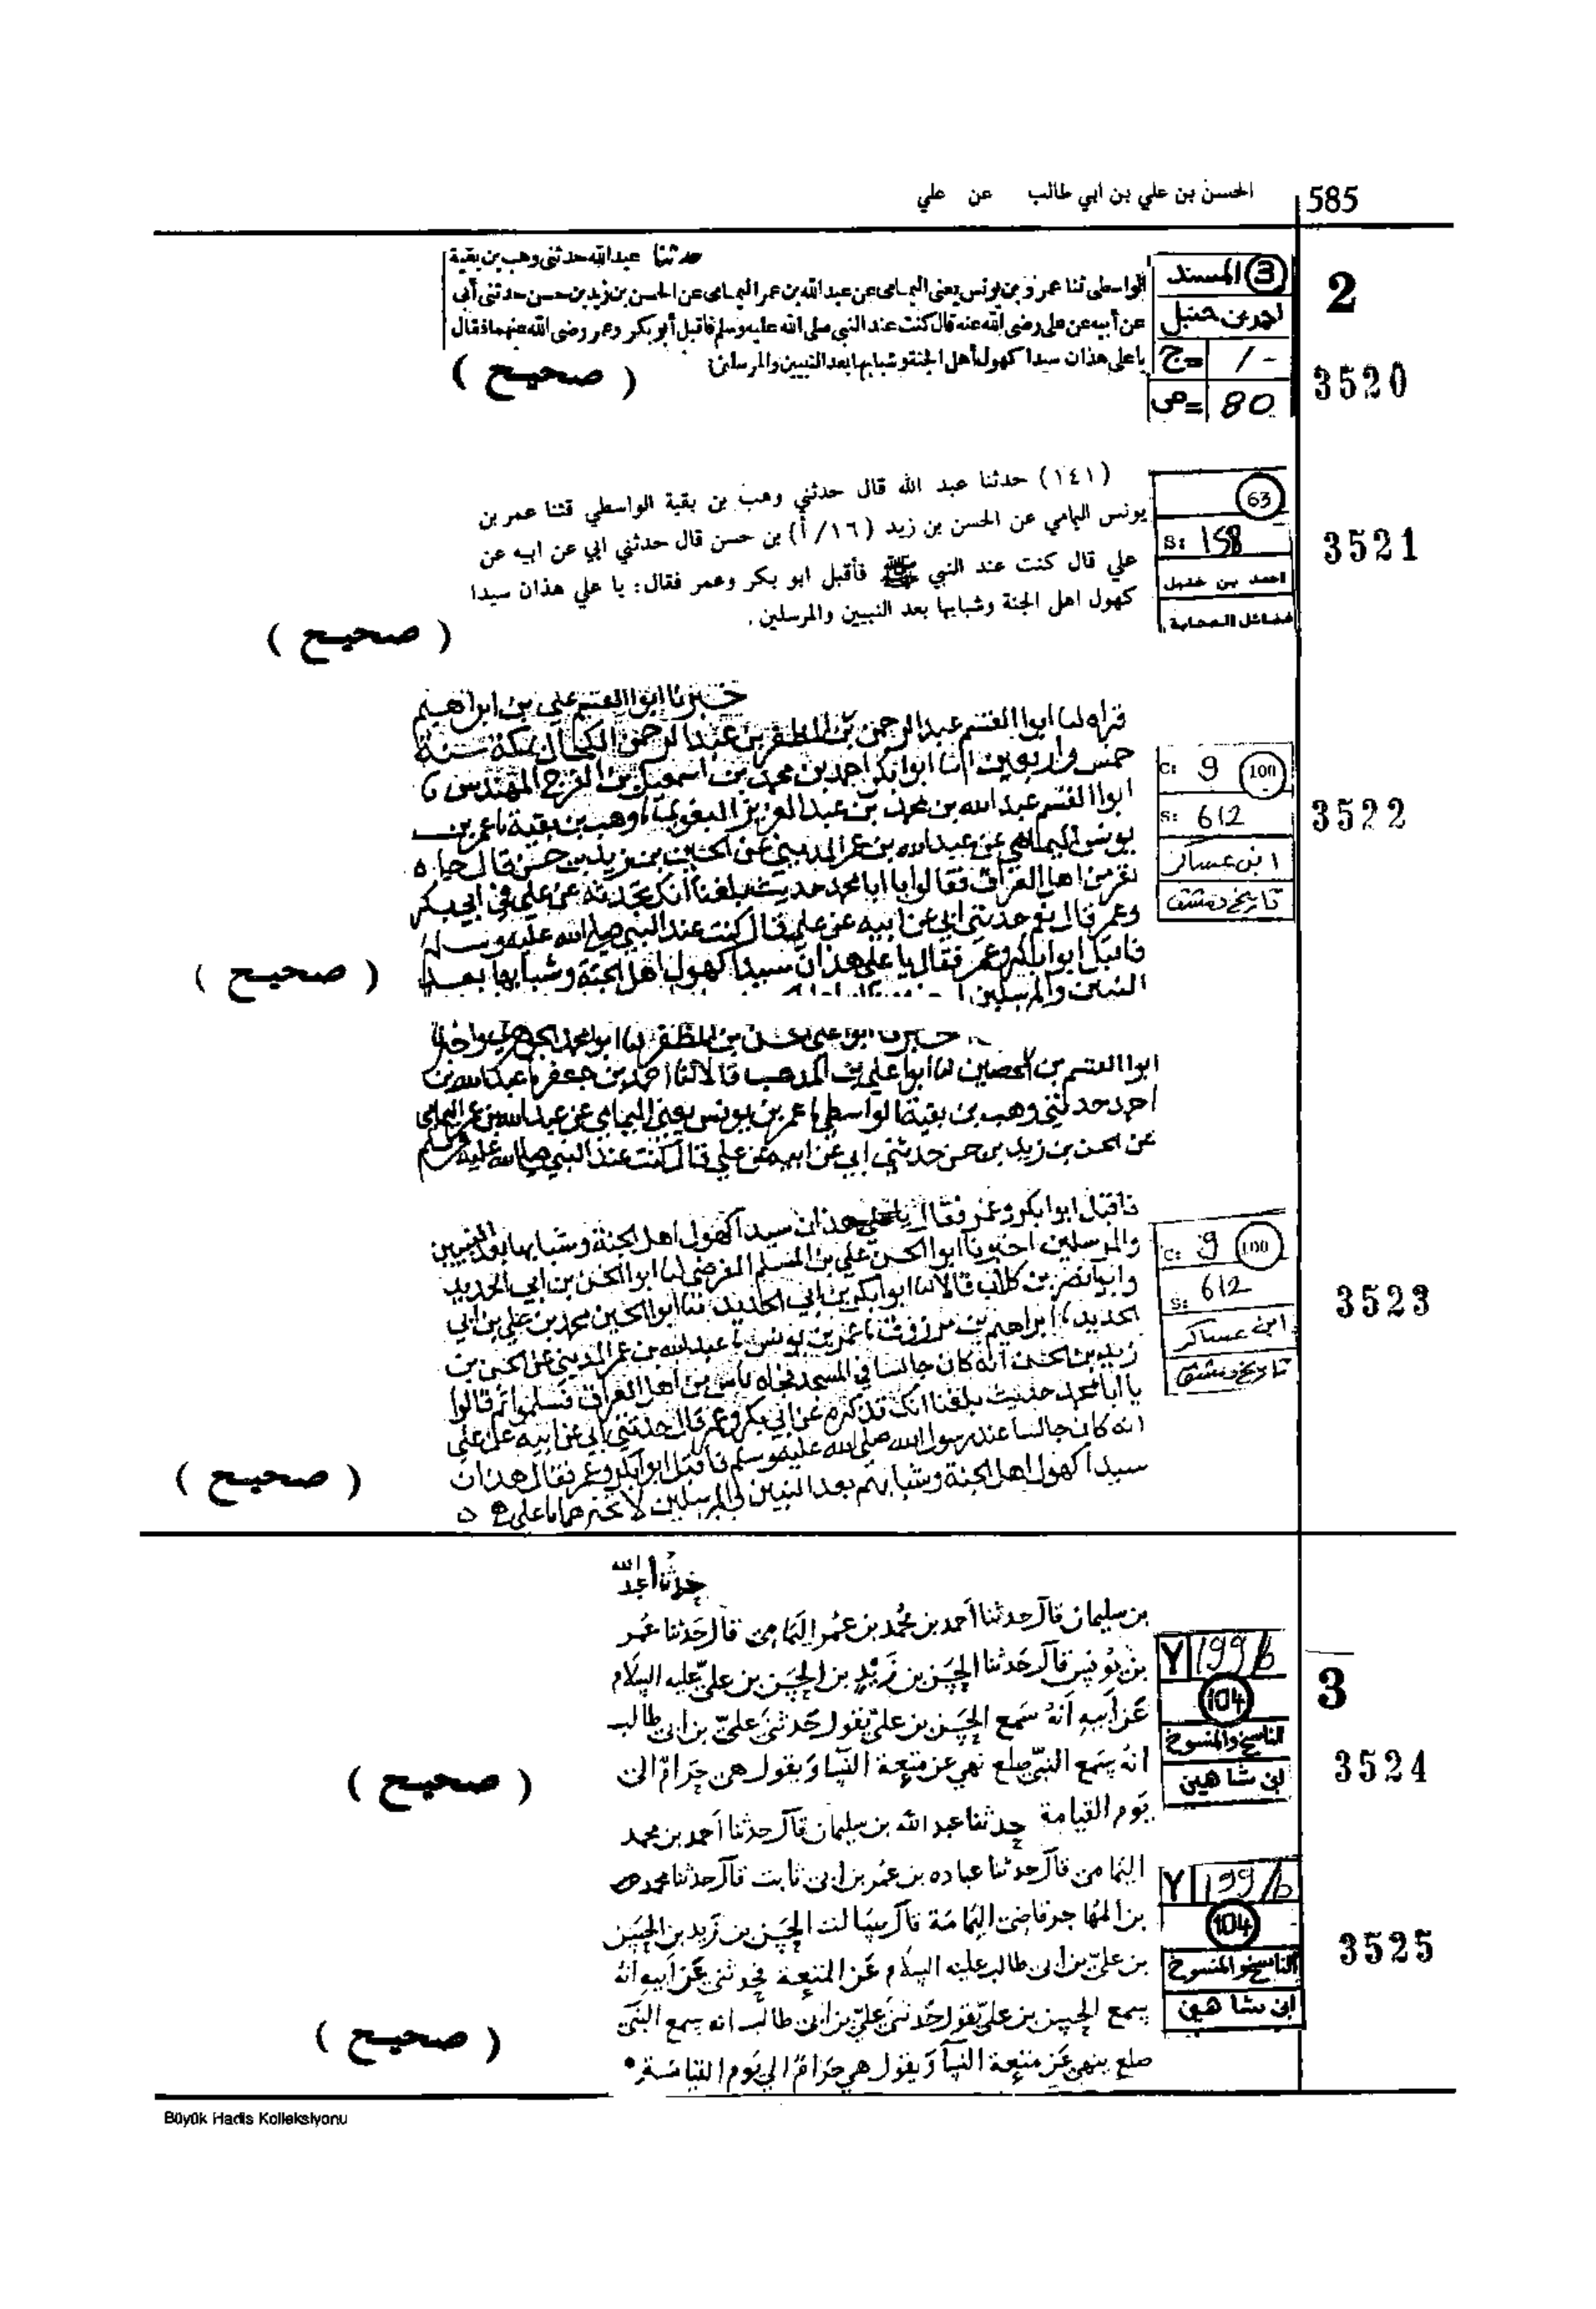 585
الحسن بن علي بن أبي طالب عن علي
2
3520
③ المسند
احمد بن حنبل
ج= 1/-
ص= 80
حدثنا عبدالله حدثني وهب بن بقية
الواسطى ثنا عمرو بن يونس يعنى اليمامى عن عبد الله بن عمر اليمامى عن الحسن بن زيد بن حسن حدثنى أبى
عن أبيه عن على رضى الله عنه قال كنت عند النبي صلى الله عليه وسلم فاقبل أبو بكر وعمر رضى الله عنهما فقال
يا على هذان سيدا كهول أهل الجنة وشبابها بعد النبيين والمرسلين
( صحيح )
3521
63
S: 158
احمد بن حنبل
فضائل الصحابة
(١٤١) حدثنا عبد الله قال حدثني وهب بن بقية الواسطي قثنا عمر بن
يونس اليمامي عن الحسن بن زيد (١٦/أ) بن حسن قال حدثني ابي عن ابيه عن
علي قال كنت عند النبي ﷺ فأقبل ابو بكر وعمر فقال: يا علي هذان سيدا
كهول اهل الجنة وشبابها بعد النبيين والمرسلين.
( صحيح )
3522
C: 9 100
S: 612
ابن عساكر
تاريخ دمشق
علي بن ابراهيم
عبد الرحمن بن المظفر بن عبد الرحمن الكحال بمكة سنة
خمس واربعين انا ابو بكر احمد بن محمد بن اسمعيل بن الفرج المهندس
ابوا القسم عبد الله بن محمد بن عبد العزيز البغوي وهب بن بقية عمر بن
يونس اليمامي عن عبد الله بن عمر المديني عن الحسن بن زيد بن حسن قال جاه
نفر من اهل العراق فقالوا يا ابا محمد حديث بلغنا انك تحدثه عن علي في ابي بكر
وعمر قال نعم حدثني ابي عن ابيه عن علي قال كنت عند النبي صلى الله عليه وسلم
فاقبل ابوا بكر وعمر فقال يا علي هذان سيدا كهول اهل الجنة وشبابها بعد
النبيين والمرسلين
( صحيح )
3523
C: 9 100
S: 612
ابن عساكر
تاريخ دمشق
ابو علي الحسن بن المظفر انا ابو محمد الجوهري
ابوا القسم بن الحصين انا ابوا علي بن المذهب قالا انا احمد بن جعفر عبد الله بن
احمد حدثني وهب بن بقية الواسطي عمر بن يونس يعني اليمامي عن عبد الله بن عمر اليمامي
عن الحسن بن زيد بن حسن حدثني ابي عن ابيه عن علي قال كنت عند النبي صلى الله عليه وسلم
فاقبل ابوا بكر وعمر فقال يا علي هذان سيدا كهول اهل الجنة وشبابها بعد النبيين
والمرسلين اخبرنا ابوا الحسن علي بن المسلم الفرضي انا ابوا الحسن بن ابي الحديد
قالا انا ابوا بكر بن ابي الحديد انا ابوا الحسين محمد بن علي بن ابي
الحديد ابراهيم بن مرزوق عمر بن يونس عبد الله بن عمر المديني عن الحسن بن
زيد بن الحسن انه كان جالسا في المسجد فجاه ناس من اهل العراق فسلموا ثم قالوا
يا ابا محمد حديث بلغنا انك تذكره عن ابي بكر وعمر قال حدثني ابي عن ابيه عن علي
انه كان جالسا عند رسول الله صلى الله عليه وسلم فاقبل ابوا بكر وعمر فقال هذان
سيدا كهول اهل الجنة وشبابهم بعد النبيين والمرسلين لا تخبرهما يا علي
( صحيح )
3
3524
Y 199/b
104
الناسخ والمنسوخ
ابن شاهين
حدثنا عبد الله
بن سليمان قال حدثنا احمد بن محمد بن عمر اليمامى قال حدثنا عمر
بن يونس قال حدثنا الحسن بن زيد بن الحسن بن علي عليه السلام
عن ابيه انه سمع الحسن بن علي يقول حدثني علي بن ابى طالب
انه سمع النبي صلع نهي عن متعة النسا ويقول هى حرام الى
يوم القيامة حدثنا عبد الله بن سليمان قال حدثنا احمد بن محمد
( صحيح )
3525
Y 199/b
104
الناسخ والمنسوخ
ابن شاهين
اليمامى قال حدثنا عباده بن عمر بن ابى ثابت قال حدثنا محمد
بن المهاجر قاضى اليمامة قال سالت الحسن بن زيد بن الحسن
بن علي بن ابى طالب عليه السلام عن المتعة فحدثني عن ابيه انه
سمع الحسن بن علي يقول حدثني علي بن ابى طالب انه سمع النبى
صلع ينهي عن متعة النسا ويقول هي حرام الي يوم القيامة
( صحيح )
Büyük Hadis Kolleksiyonu